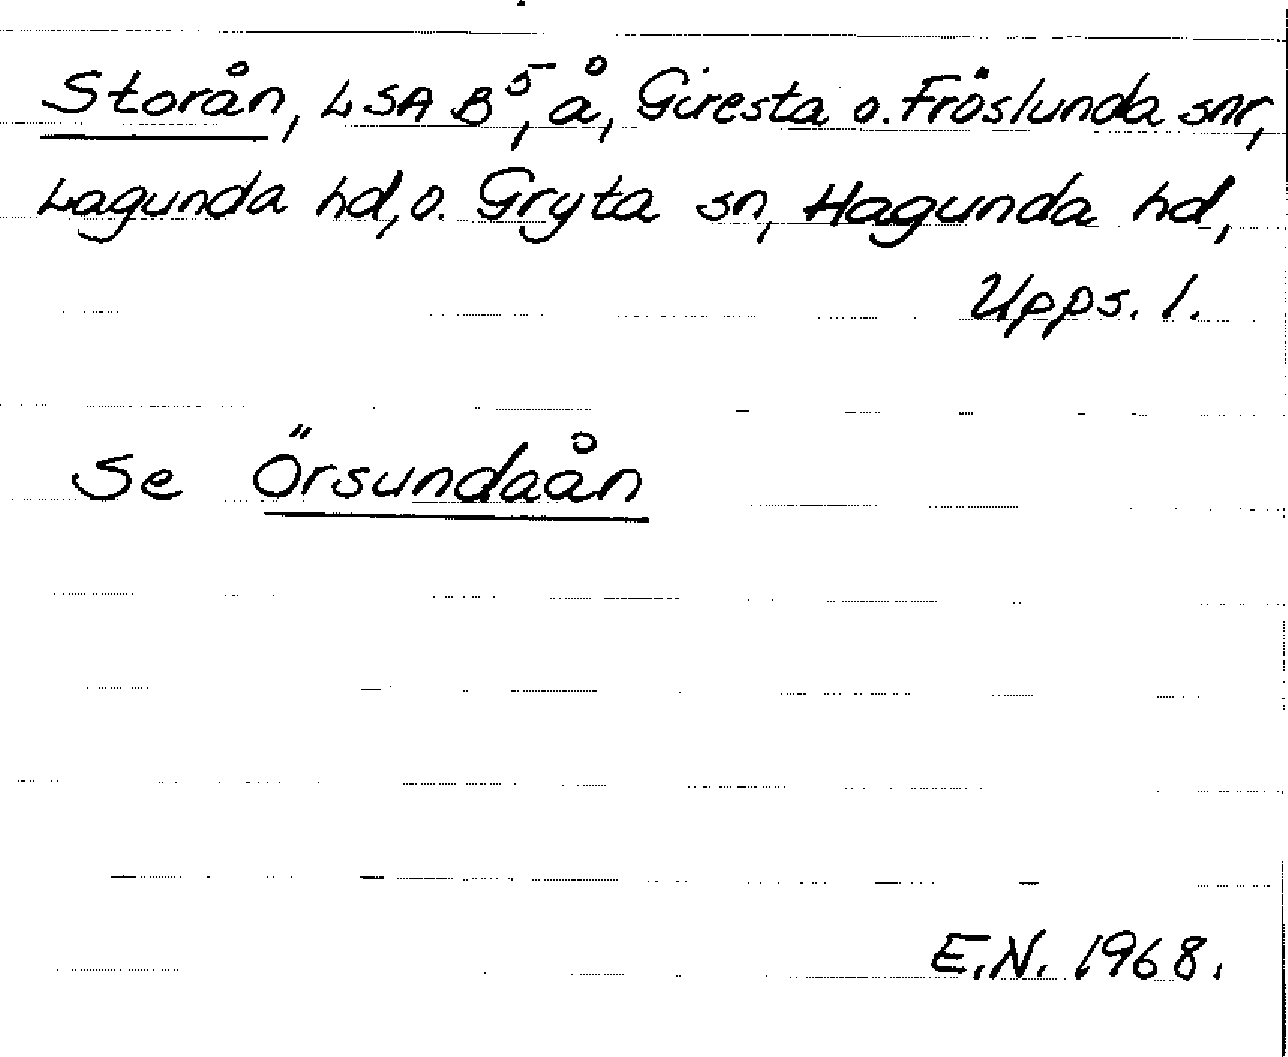 Storån, LSA B⁵, å, Giresta o. Fröslunda snr,
Lagunda hd, o. Gryta sn, Hagunda hd,
Upps. l.
Se Örsundaån
E.N. 1968.